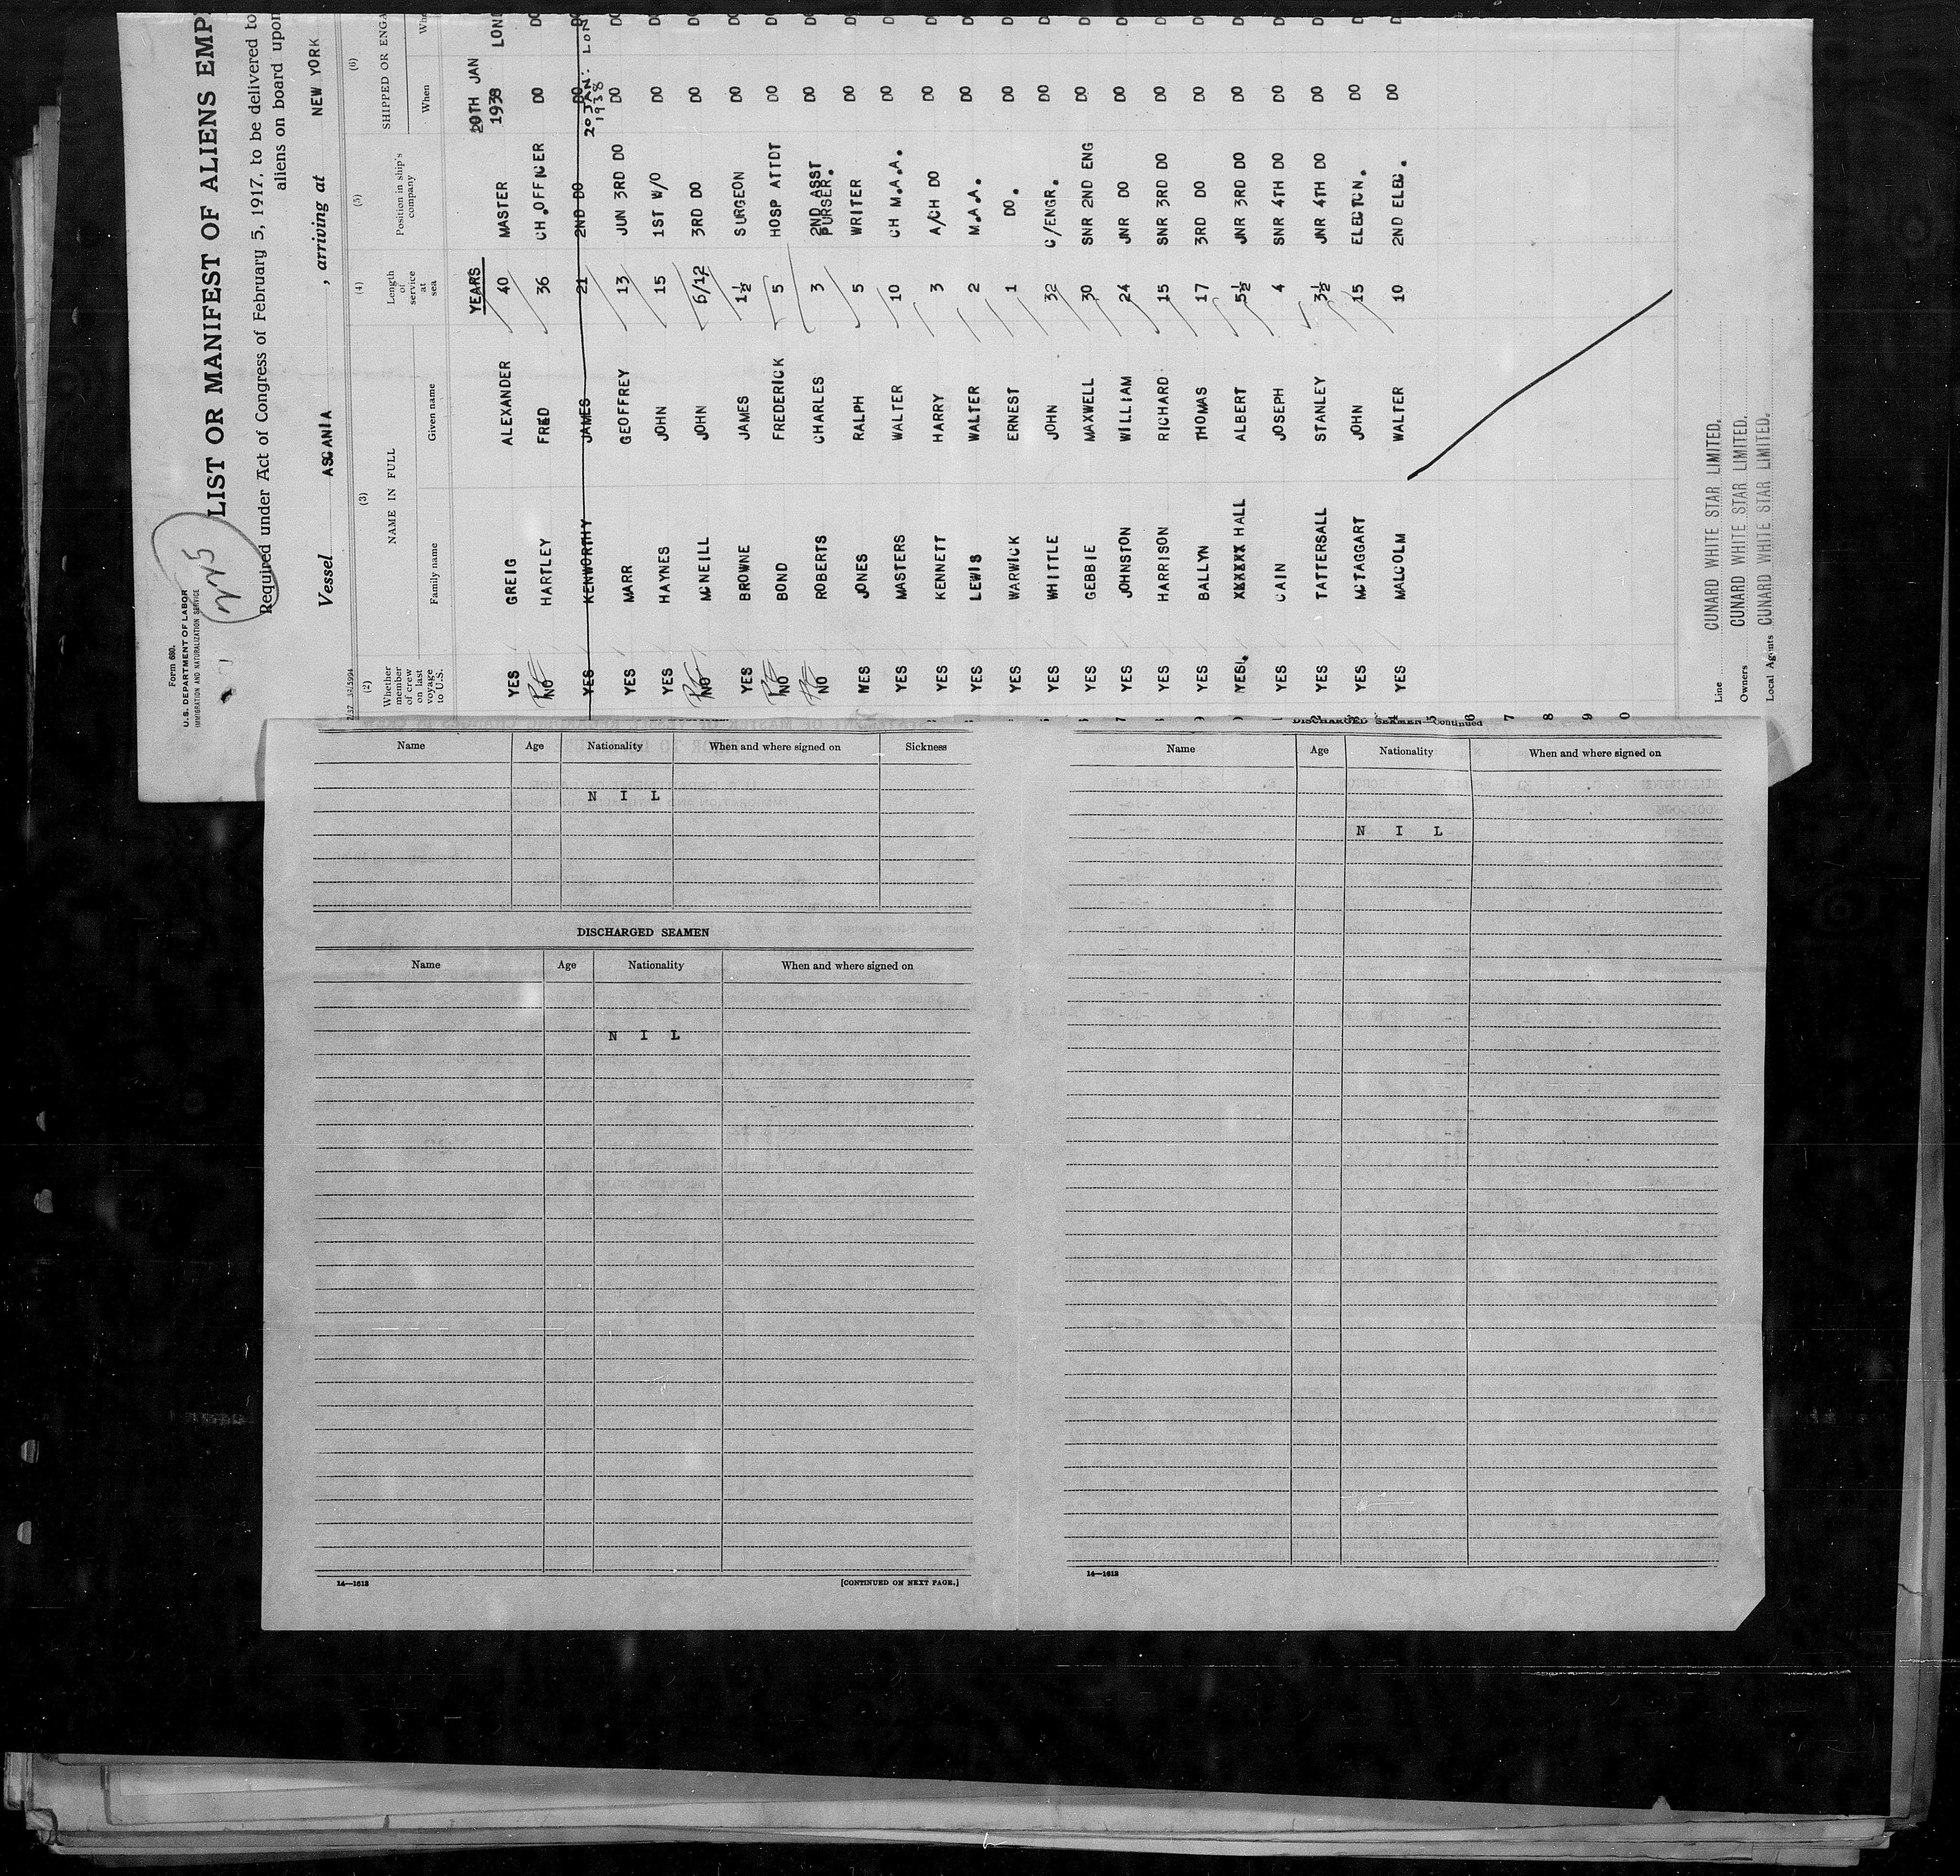 Form 680.
U.S. DEPARTMENT OF LABOR
IMMIGRATION AND NATURALIZATION SERVICE
225
LIST OR MANIFEST OF ALIENS EMP
Required under Act of Congress of February 5, 1917, to be delivered to
aliens on board upon
Vessel ASCANIA , arriving at NEW YORK
(2) (3) (4) (5) (6)
Whether member of crew on last voyage to U.S. NAME IN FULL Length of service at sea Position in ship's company SHIPPED OR ENGA
Family name Given name When Wh
YEARS 20TH JAN
YES GREIG ALEXANDER 40 MASTER 1938 LOND
NO HARTLEY FRED 36 CH.OFFICER DO DO
YES KENWORTHY JAMES 21 2ND DO DO DO
20 JAN: 1938 LON
YES MARR GEOFFREY 13 JUN 3RD DO DO DO
YES HAYNES JOHN 15 1ST W/O DO DO
NO MCNEILL JOHN 6/12 3RD DO DO DO
YES BROWNE JAMES 1½ SURGEON DO DO
NO BOND FREDERICK 5 HOSP ATTDT DO DO
NO ROBERTS CHARLES 3 2ND ASST PURSER. DO DO
YES JONES RALPH 5 WRITER DO D
YES MASTERS WALTER 10 CH M.A.A. DO D
YES KENNETT HARRY 3 A/CH DO DO D
YES LEWIS WALTER 2 M.A.A. DO D
YES WARWICK ERNEST 1 DO. DO D
YES WHITTLE JOHN 32 C/ENGR. DO D
YES GEBBIE MAXWELL 30 SNR 2ND ENG DO D
YES JOHNSTON WILLIAM 24 JNR DO DO D
YES HARRISON RICHARD 15 SNR 3RD DO DO D
YES BALLYN THOMAS 17 3RD DO DO D
YES. XXXXXX HALL ALBERT 5½ JNR 3RD DO DO D
YES CAIN JOSEPH 4 SNR 4TH DO DO D
YES TATTERSALL STANLEY 3½ JNR 4TH DO DO D
YES MCTAGGART JOHN 15 ELECTCN. DO D
YES MALCOLM WALTER 10 2ND ELEC. DO D
Line CUNARD WHITE STAR LIMITED.
Owners CUNARD WHITE STAR LIMITED.
Local Agents CUNARD WHITE STAR LIMITED.
Name Age Nationality When and where signed on Sickness
N I L
DISCHARGED SEAMEN
Name Age Nationality When and where signed on
N I L
14—1613 [CONTINUED ON NEXT PAGE.]
DISCHARGED SEAMEN—Continued
Name Age Nationality When and where signed on
N I L
14—1613